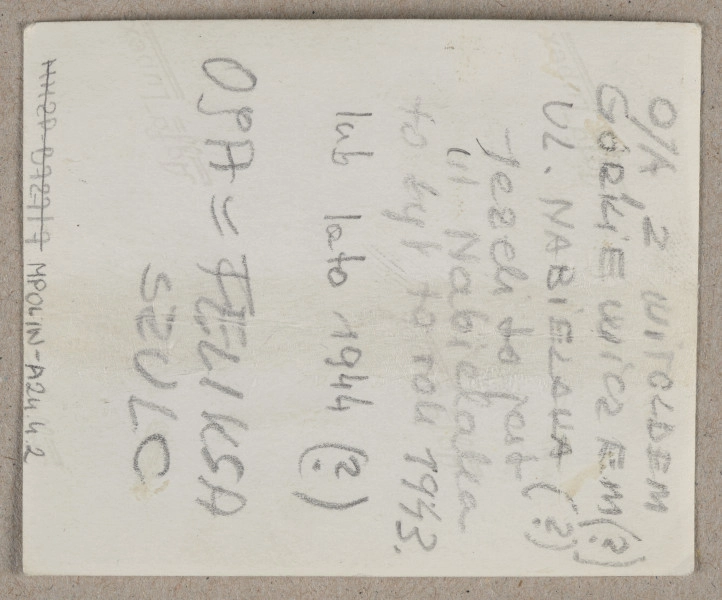 Z WITOLDEM
GORKIEWICZEM (?)
UL. NABIELAKA (?)
Jezeli to jest
ul Nabielaka
to był to rok 1943.
lub lato 1944 (?)
= FELIKSA
SZULC
MPOLIN-A24.4.2